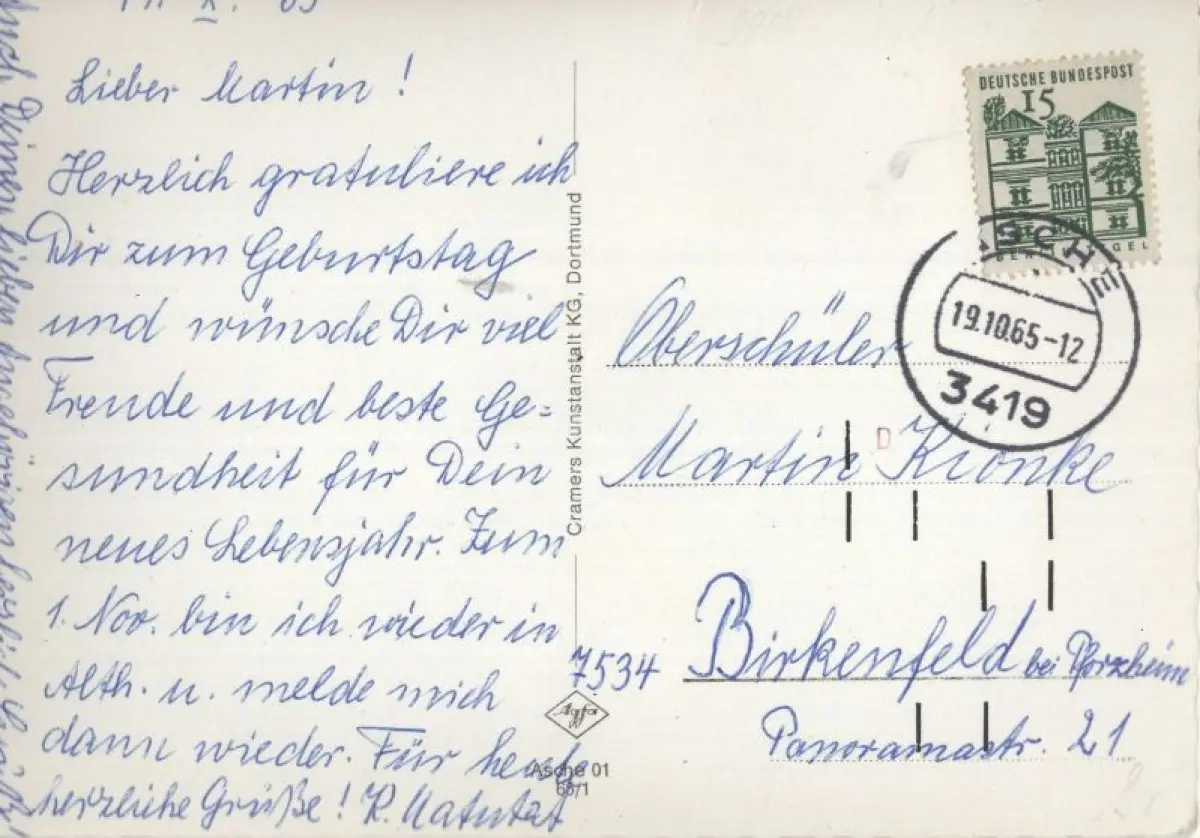 Lieber Martin!
Herzlich gratuliere ich
Dir zum Geburtstag
und wünsche Dir viel
Freude und beste Ge=
sundheit für Dein
neues Lebensjahr. Zum
1. Nov. bin ich wieder in
Alth. u. melde mich
dann wieder. Für heute
herzliche Grüße! K. Matutat
Auch Deinen lieben
herzlich
Cramers Kunstanstalt KG, Dortmund
Agfa
Asche 01
65/1
DEUTSCHE BUNDESPOST
15
ASCHE
19.10.65-12
3419
Oberschüler
Martin Krönke
7534 Birkenfeld bei Pforzheim
Panoramastr. 21